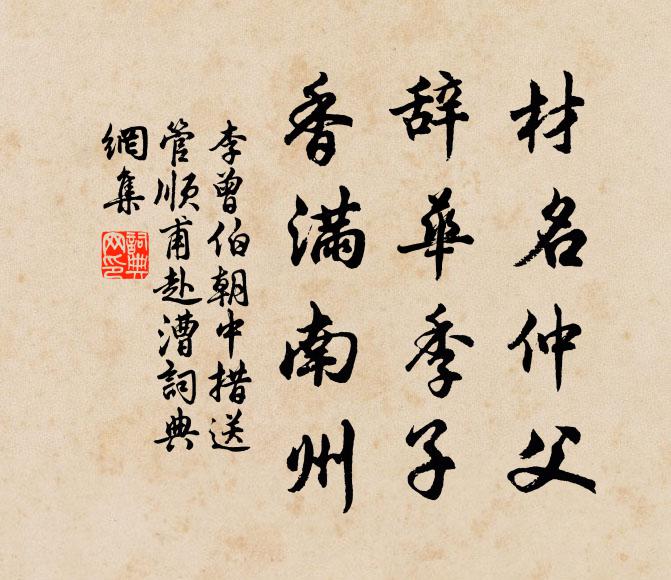 材名仲父
辞華季子
香满南州
李曾伯朝中措送
管顺甫赴漕詞典
網集
詞典
网印